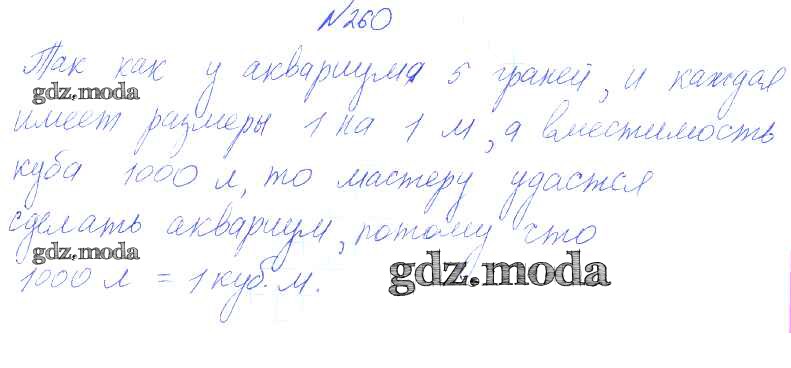 №260
Так как у аквариума 5 граней, и каждая
gdz.moda
имеет размеры 1 на 1 м, а вместимость
куба 1000 л, то мастеру удастся
сделать аквариум, потому что
gdz.moda
1000 л = 1 куб. м.
gdz.moda